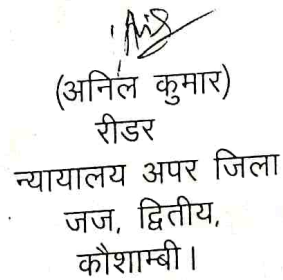 (अनिल कुमार)
रीडर
न्यायालय अपर जिला
जज, द्वितीय,
कौशाम्बी।